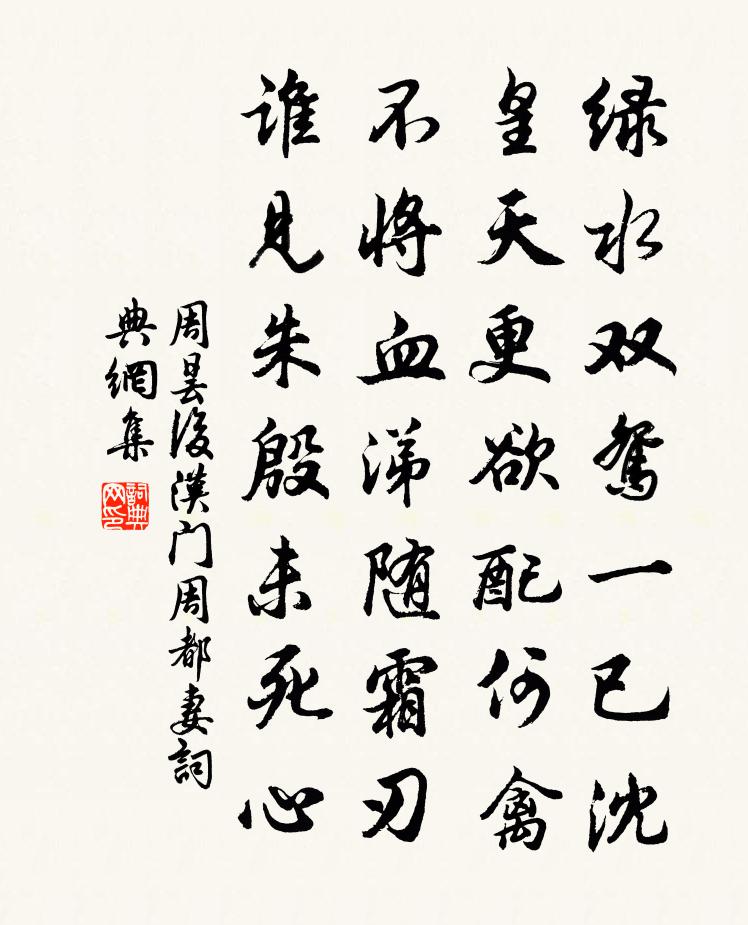 绿水双鸳一已沈
皇天更欲配何禽
不将血涕随霜刃
谁见朱殷未死心
周昙後漢门周都妻詞
典網集
詞典
网印